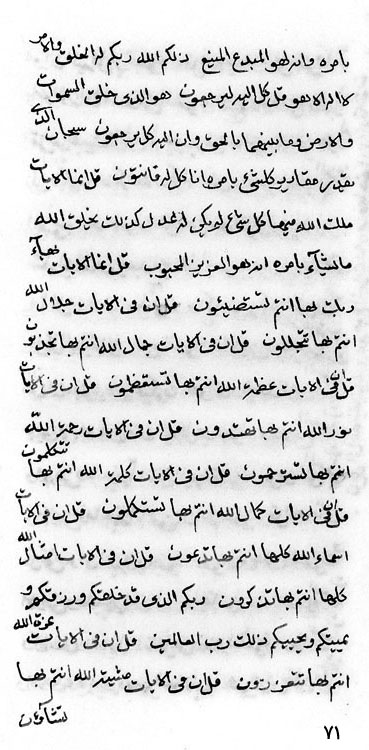 بامره وانه لهو المبدع المنيع ذلكم الله ربكم له الخلق والامر
لا اله الا هو قل كل اليه ليرجعون هو الذى خلق السموات
والارض وما بينهما بالحق وان اليه كل يرجعون سبحان الذى
يقدر مقادير كلشئ بامره انا كل له قانتون قل انما الايات
ملك الله فيها كل شئ لم يكن له عدل كذلك يخلق الله
مايشآء بامره انه هو العزيز المحبوب قل انما الايات بهآء
ربك بها انتم تستضيئون قل ان فى الايات جلال الله
انتم بها تتجللون قل ان فى الايات جمال الله انتم بها تجذبون
قل ان فى الايات عظمة الله انتم بها تستعظمون قل ان فى الايات
نور الله انتم بها تهتدون قل ان فى الايات رحمة الله
انتم بها تسترحمون قل ان فى الايات كلمة الله انتم بها تتكلمون
قل ان فى الايات كمال الله انتم بها تستكملون قل ان فى الايات
اسماء الله كلها انتم بها تدعون قل ان فى الايات امثال الله
كلها انتم بها تذكرون ربكم الذى قد خلقكم ورزقكم و
يميتكم ويحييكم ذلك رب العالمين قل ان فى الايات عزة الله
انتم بها تتعززون قل ان فى الايات مشية الله انتم بها
تشاؤن
٧١